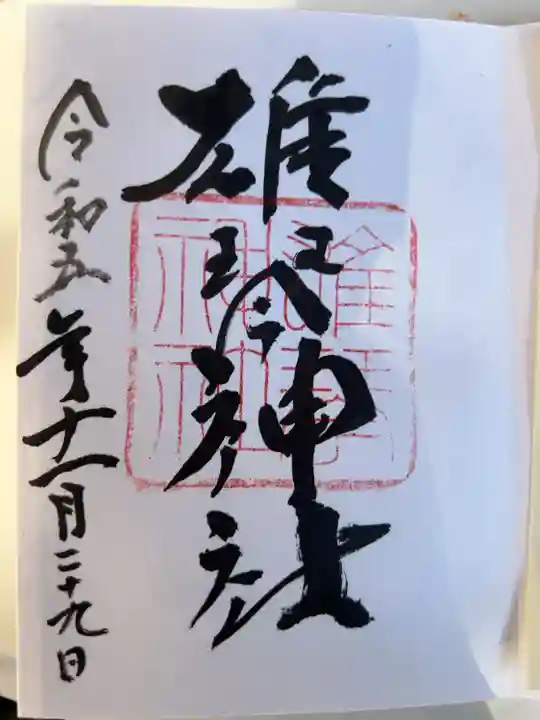 雄琴神社
雄琴
神社
令和五年十一月二十九日